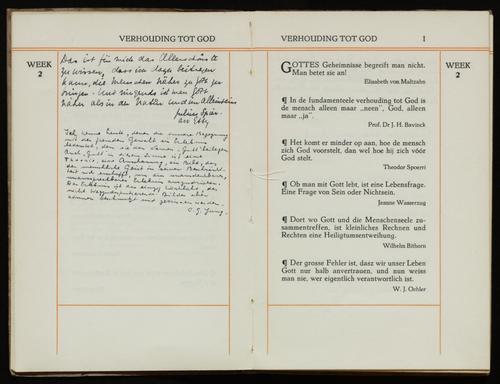 VERHOUDING TOT GOD
WEEK
2
Das ist für mich das Allerschönste
zu wissen, dass ich dazu beitragen
kann, die Menschen näher zu Gott zu
bringen. Und nirgends ist man Gott
näher als in der Natur und im Alleinsein
Julius Spier
an Etty
Ich kenne heute, denen die innere Begegnung
mit der fremden Gewalt ein Erlebnis
bedeutet, dem sie den Namen "Gott" beilegen.
Auch "Gott" in diesem Sinne ist eine
Theorie, eine Anschauung, ein Bild, das
der menschliche Geist in seiner Beschränkt-
heit sich erschafft, um ein
unaussprechbares Erlebnis auszudrücken.
Das Erlebnis ist das einzig Wirkliche, das
nicht Wegzudisputierende. Bilder aber
können beschmutzt und zerrissen werden.
C. G. Jung.
VERHOUDING TOT GOD
1
WEEK
2
GOTTES Geheimnisse begreift man nicht.
Man betet sie an!
Elisabeth von Maltzahn
¶ In de fundamenteele verhouding tot God is
de mensch alleen maar „neen", God, alleen
maar „ja".
Prof. Dr J. H. Bavinck
¶ Het komt er minder op aan, hoe de mensch
zich God voorstelt, dan wel hoe hij zich vóór
God stelt.
Theodor Spoerri
¶ Ob man mit Gott lebt, ist eine Lebensfrage.
Eine Frage von Sein oder Nichtsein.
Jeanne Wasserzug
¶ Dort wo Gott und die Menschenseele zu-
sammentreffen, ist kleinliches Rechnen und
Rechten eine Heiligtumsentweihung.
Wilhelm Bithorn
¶ Der grosse Fehler ist, dasz wir unser Leben
Gott nur halb anvertrauen, und nun weiss
man nie, wer eigentlich verantwortlich ist.
W. J. Oehler